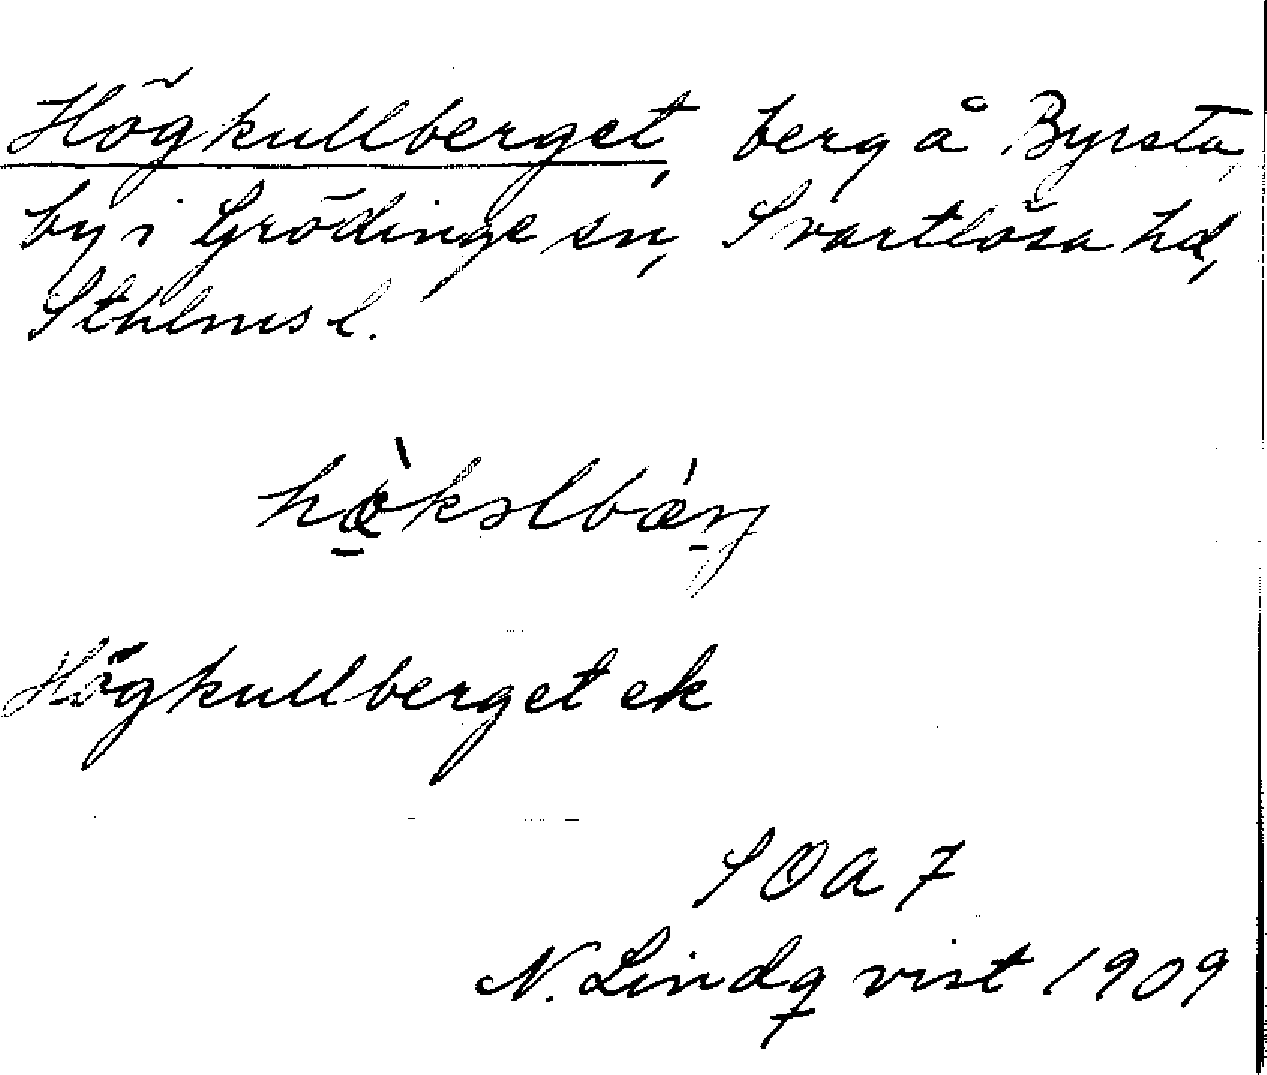 Högkullberget, berg å Byrsta
by i Grödinge sn, Svartlösa hd,
Sthlms l.
Högkullberget ek
SOA 7
N. Lindqvist 1909